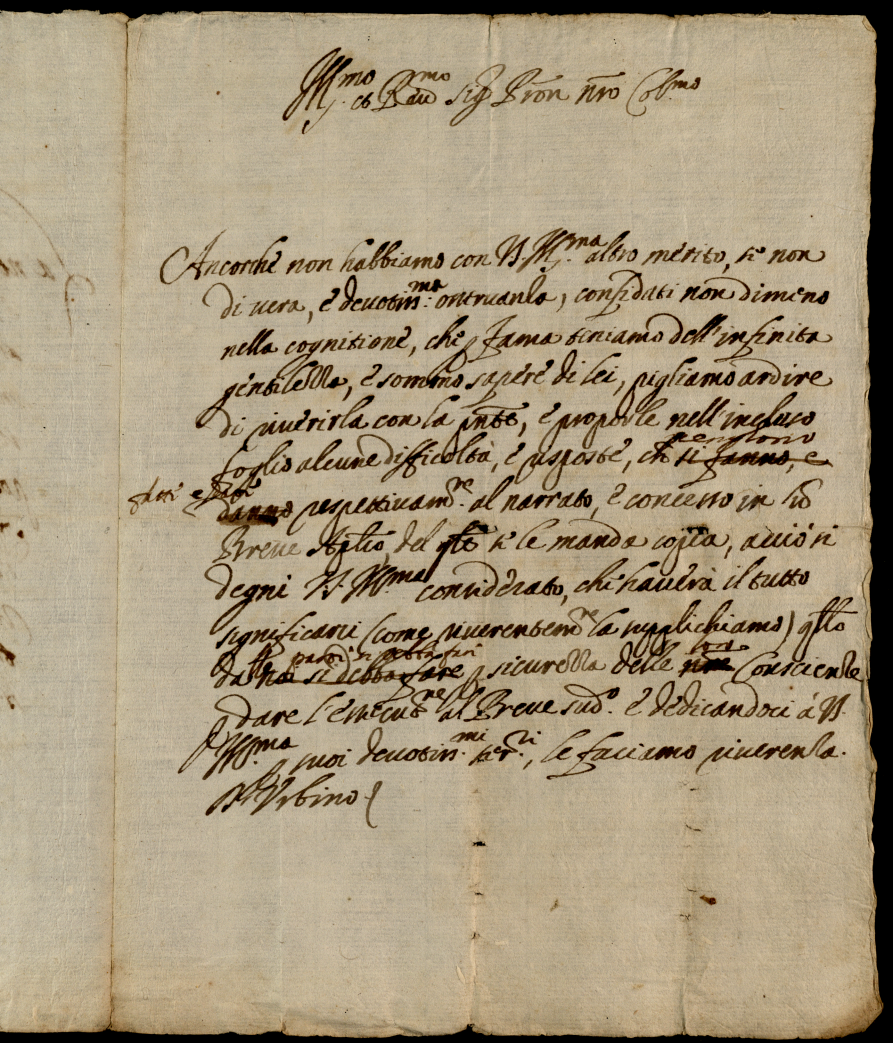 Ill.mo et Rev.mo Sig.r Pron nro Col.mo
Ancorche non habbiamo con V. Ill.ma altro merito, se non
di vera, e devotiss.ma osservanza, confidati non dimeno
nella cognitione, che p fama teniamo dell'infinita
gentilezza, e sommo sapere di lei, pigliamo ardire
di riverirla con la pnte, e proporle nell'incluso
foglio alcune difficoltà, e risposte, che si fanno, e
fatte e date danno respettivam.te al narrato, e concesso in
Breve Aplico, del qle se le manda copia, acciò si
degni V. Ill.ma considerato, che haverà il tutto
significarci (come riverentem.te la supplichiamo) qllo
da noi si debba fare p sicurezza delle nre loro Conscienze
p dare l'essecut.ne al Breve sud.o e dedicandoci à V.
Ill.ma suoi devotiss.mi ser.ri, le facciamo riverenza.
Urbino